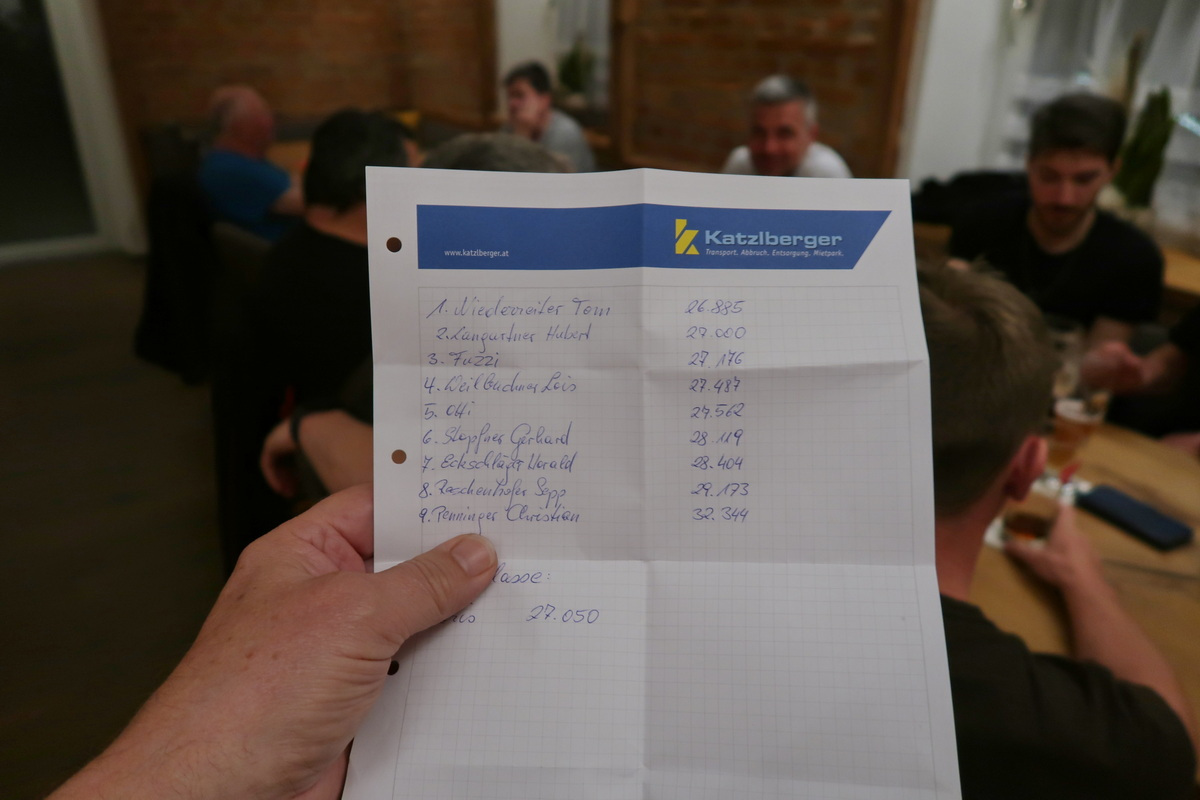 www.katzlberger.at
Katzlberger
Transport. Abbruch. Entsorgung. Mietpark.
1. Niederreiter Tom 26.885
2. Langartner Hubert 27.000
3. Fuzzi 27.176
4. Weilbuchner Lois 27.487
5. Otti 27.562
6. Stopfner Gerhard 28.119
7. Eckschlager Harald 28.404
8. Raschenhofer Sepp 29.173
9. Penninger Christian 32.344
lasse:
27.050